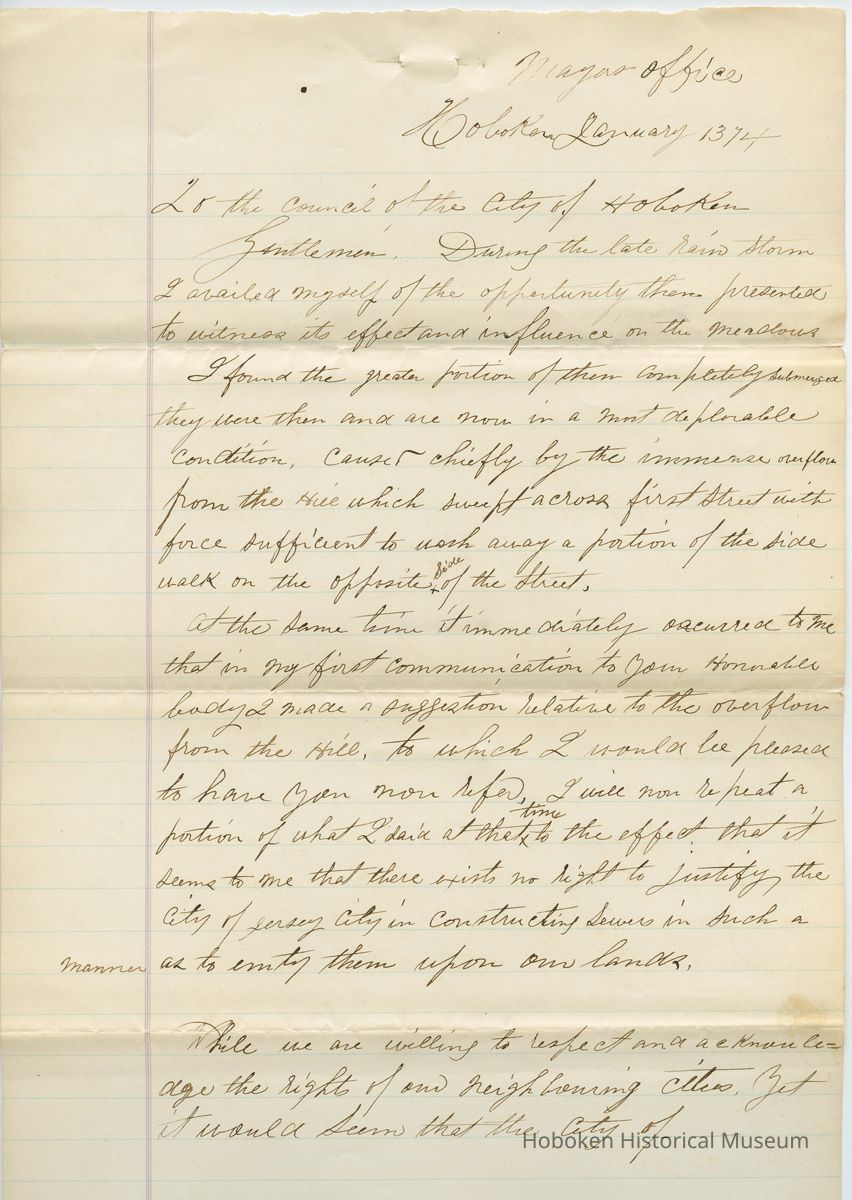 Mayors office
Hoboken January 1874
To the council of the City of Hoboken
Gentlemen. During the late rain storm
I availed myself of the opportunity then presented
to witness its effect and influence on the meadows
I found the greater portion of them completely submerged
they were then and are now in a most deplorable
condition, caused chiefly by the immense overflow
from the Hill which swept across first Street with
force sufficient to wash away a portion of the side
walk on the opposite side of the Street.
At the same time it immediately occurred to me
that in my first communication to your Honorable
body I made a suggestion relative to the overflow
from the Hill, to which I would be pleased
to have you now refer. I will now repeat a
portion of what I said at that time to the effect that it
seems to me that there exists no right to justify the
City of Jersey City in constructing sewers in such a
manner as to emty them upon our lands.
While we are willing to respect and acknowle=
dge the rights of our neighbouring cities. Yet
it would seem that the City of
Hoboken Historical Museum